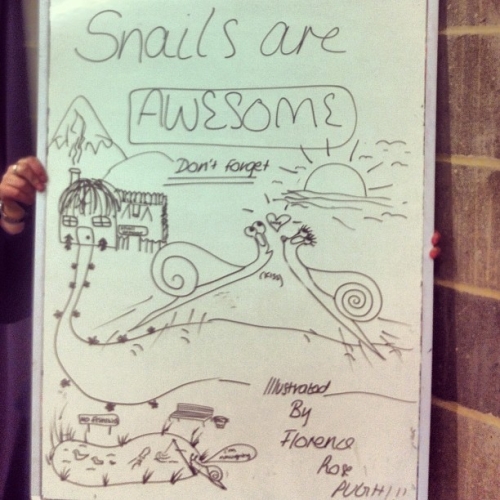 Snails are
AWESOME
Don't forget
Illustrated
By
Florence
Rose
PUGH!!!
NO FISHING